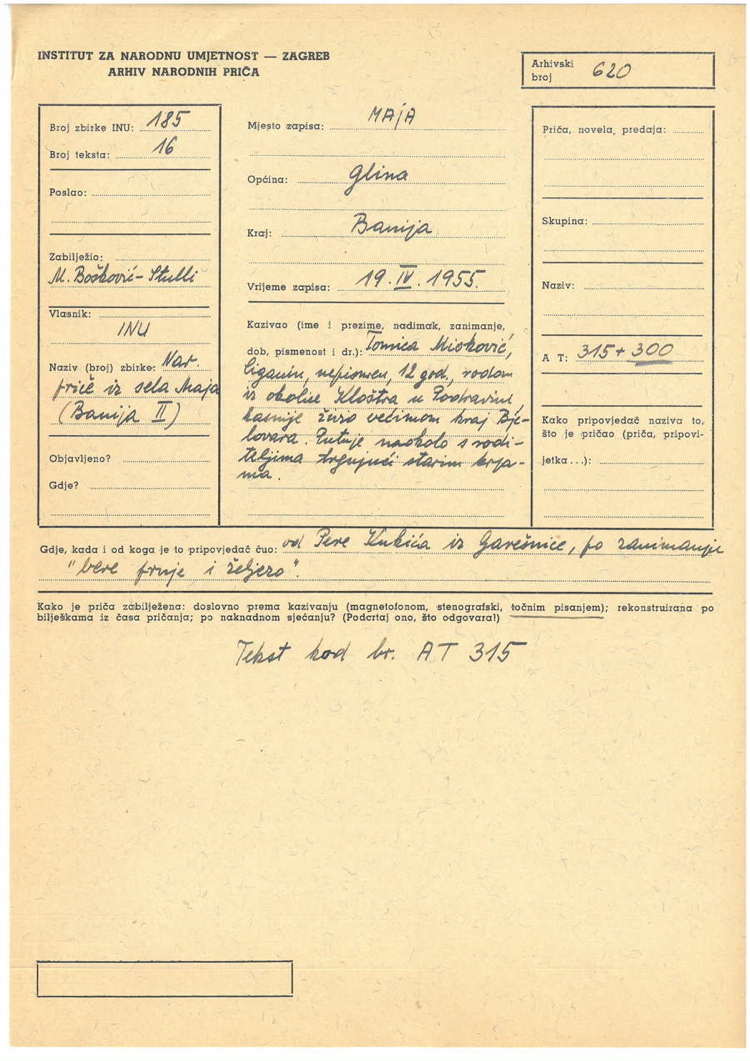 INSTITUT ZA NARODNU UMJETNOST — ZAGREB
ARHIV NARODNIH PRIČA
Arhivski broj 620
Broj zbirke INU: 185
Broj teksta: 16
Poslao:
Zabilježio:
M. Bošković-Stulli
Vlasnik:
INU
Naziv (broj) zbirke: Nar.
priče iz sela Maja
(Banija II)
Objavljeno?
Gdje?
Mjesto zapisa: MAJA
Općina: Glina
Kraj: Banija
Vrijeme zapisa: 19. IV. 1955.
Kazivao (ime i prezime, nadimak, zanimanje,
dob, pismenost i dr.): Tomica Mioković,
Ciganin, nepismen, 12 god., rodom
iz okolice Kloštra u Podravini,
kasnije živio većinom kraj Bje-
lovara. Putuje naokolo s rodi-
teljima trgujući starim krpa-
ma.
Priča, novela, predaja:
Skupina:
Naziv:
A T: 315 + 300
Kako pripovjedač naziva to,
što je pričao (priča, pripovi-
jetka...):
Gdje, kada i od koga je to pripovjedač čuo: od Pere Kukića iz Garešnice, po zanimanju
"bere frnje i željezo".
Kako je priča zabilježena: doslovno prema kazivanju (magnetofonom, stenografski, točnim pisanjem); rekonstruirana po
bilješkama iz časa pričanja; po naknadnom sjećanju? (Podcrtaj ono, što odgovara!)
Tekst kod br. AT 315